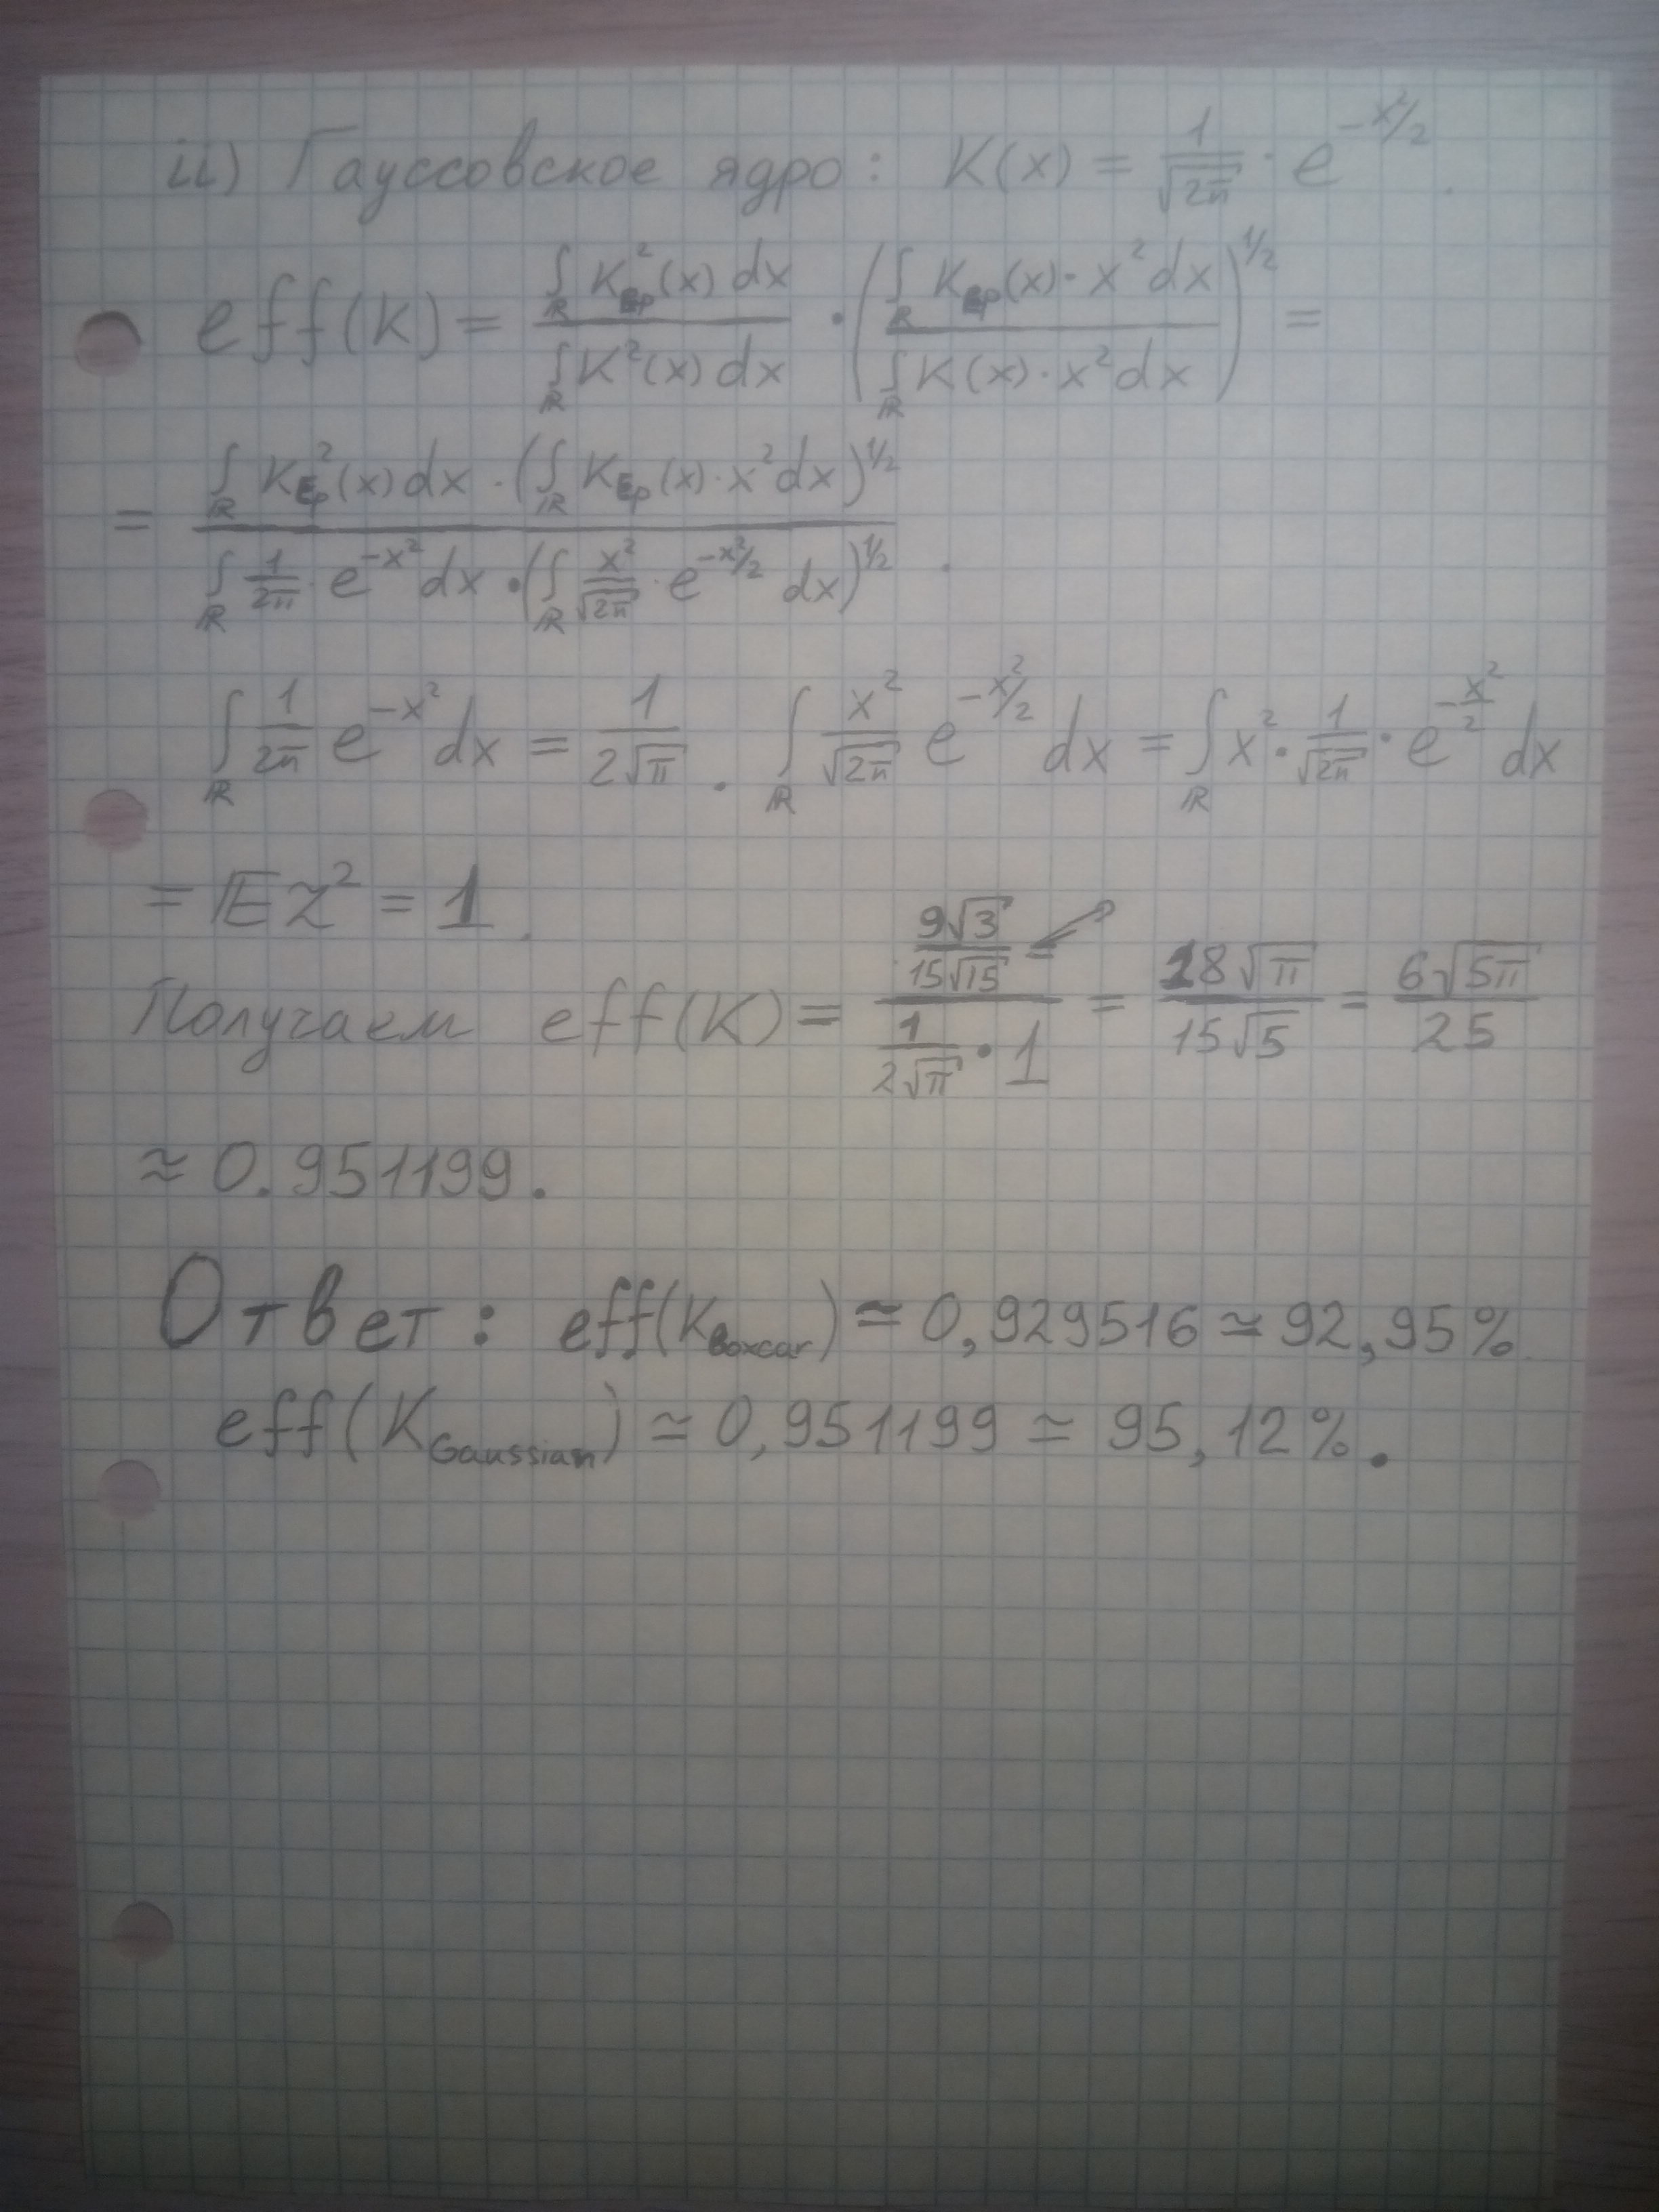 ii) Гауссовское ядро: K(x) = 1/√(2π) · e^(-x²/2).
eff(K) = ∫_ℝ K_Ep²(x) dx / ∫_ℝ K²(x) dx · (∫_ℝ K_Ep(x) · x² dx / ∫_ℝ K(x) · x² dx)^(1/2) =
= ∫_ℝ K_Ep²(x) dx · (∫_ℝ K_Ep(x) · x² dx)^(1/2) / ∫_ℝ 1/(2π) · e^(-x²) dx · (∫_ℝ x²/√(2π) · e^(-x²/2) dx)^(1/2) .
∫_ℝ 1/(2π) e^(-x²) dx = 1/(2√π) . ∫_ℝ x²/√(2π) e^(-x²/2) dx = ∫_ℝ x² · 1/√(2π) · e^(-x²/2) dx
= 𝔼Z² = 1.
Получаем eff(K) = (9√3/(15√15)) / (1/(2√π) · 1) = 18√π/(15√5) = 6√(5π)/25
≈ 0.951199.
Ответ: eff(K_Boxcar) ≃ 0,929516 ≃ 92,95%
eff(K_Gaussian) ≃ 0,951199 ≃ 95,12%.